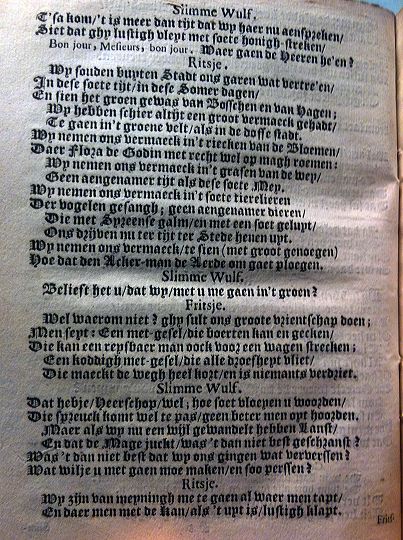 Slimme Wulf.
T'sa kom/'t is meer dan tijt dat wy haer nu aenspreken/
Siet dat ghy lustigh vleyt met soete honigh-streken/
Bon jour, Mesieurs, bon jour. Waer gaen de Heeren he'en?
Ritsje.
Wy souden buyten Stadt ons garen wat vertre'en/
In dese soete tijt/in dese Somer dagen/
En sien het groen gewas van Bosschen en van Hagen;
Wy hebben schier altijt een groot vermaeck gehadt/
Te gaen in't groene velt/als in de doffe stadt.
Wy nemen ons vermaeck in't riecken van de Bloemen/
Daer Flora de Godin met recht wel op magh roemen:
Wy nemen ons vermaeck in't grasen van de wey/
Geen aengenamer tijt als dese soete Mey.
Wy nemen ons vermaeck in't soete tierelieren
Der vogelen gesangh; geen aengenamer dieren/
Die met Spreense galm/en met een soet gelupt/
Ons drijven nu ter tijt ter Stede henen upt.
Wy nemen ons vermaeck/te sien (met groot genoegen)
Hoe dat den Acker-man de Aerde om gaet ploegen.
Slimme Wulf.
Belieft het u/dat wy/met u me gaen in't groen?
Fritsje.
Wel waerom niet? ghy sult ons groote vrientschap doen;
Men seyt: Een met-gesel/die boerten kan en gecken/
Die kan een reysbaer man oock voor een wagen strecken;
Een koddigh met-gesel/die alle droefheyt vliet/
Die maeckt de wegh heel kort/en is niemants verdriet.
Slimme Wulf.
Dat hebje/Heerschop/wel; hoe soet vloepen u woorden/
Die spreuck komt wel te pas/geen beter men oyt hoorden.
Maer als wy nu een wijl gewandelt hebben Lanst/
En dat de Mage juckt/was 't dan niet best geschranst?
Was't dan niet best dat wy ons gingen wat ververssen?
Wat wilje u met gaen moe maken/en soo perssen?
Ritsje.
Wy zijn van meyningh me te gaen al waer men tapt/
En daer men met de kan/als 't upt is/lustigh klapt.